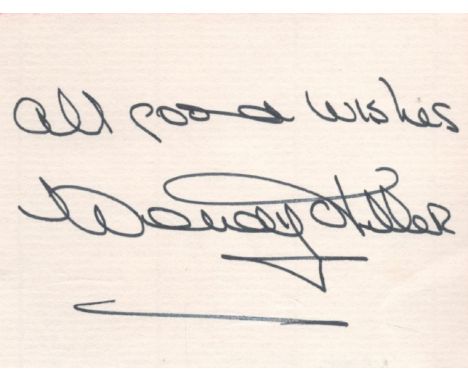 all good wishes
Wendy Hiller